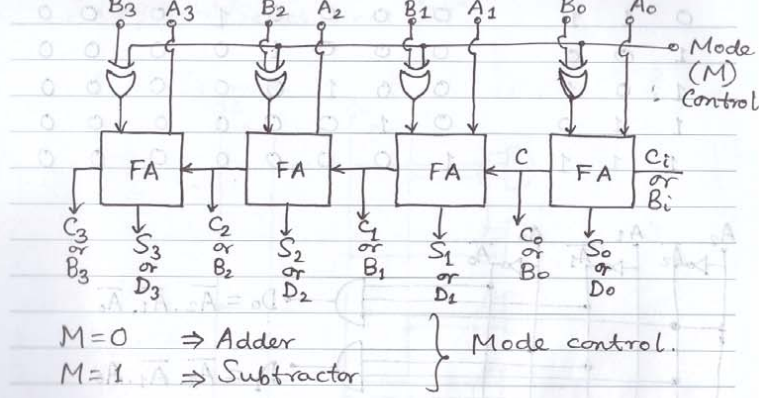 B3 A3 B2 A2 B1 A1 B0 A0
Mode
(M)
Control
FA FA FA C FA Ci
or
Bi
C3
or
B3
S3
or
D3
C2
or
B2
S2
or
D2
C1
or
B1
S1
or
D1
C0
or
B0
S0
or
D0
M=0 ⇒ Adder
M=1 ⇒ Subtractor
Mode control.